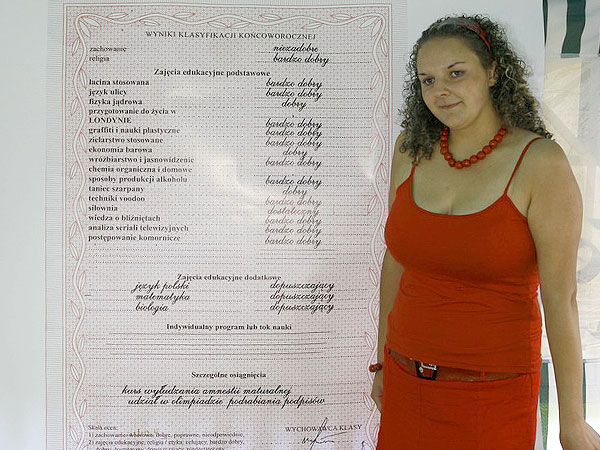 WYNIKI KLASYFIKACJI KOŃCOWOROCZNEJ
zachowanie niezadobre
religia bardzo dobry
Zajęcia edukacyjne podstawowe
łacina stosowana bardzo dobry
język ulicy bardzo dobry
fizyka jądrowa dobry
przygotowanie do życia w
LONDYNIE bardzo dobry
graffiti i nauki plastyczne bardzo dobry
zielarstwo stosowane bardzo dobry
ekonomia barowa dobry
wróżbiarstwo i jasnowidzenie bardzo dobry
chemia organiczna i domowe
sposoby produkcji alkoholu bardzo dobry
taniec szarpany dobry
techniki voodoo bardzo dobry
siłownia dostateczny
wiedza o bliźniętach bardzo dobry
analiza seriali telewizyjnych bardzo dobry
postępowanie komornicze bardzo dobry
Zajęcia edukacyjne dodatkowe
język polski dopuszczający
matematyka dopuszczający
biologia dopuszczający
Indywidualny program lub tok nauki
Szczególne osiągnięcia
kurs wyłudzania amnestii maturalnej
udział w olimpiadzie podrabiania podpisów
WYCHOWAWCA KLASY
Skala ocen:
1) zachowanie: wzorowe, dobre, poprawne, nieodpowiednie,
2) zajęcia edukacyjne, religia / etyka: celujący, bardzo dobry,